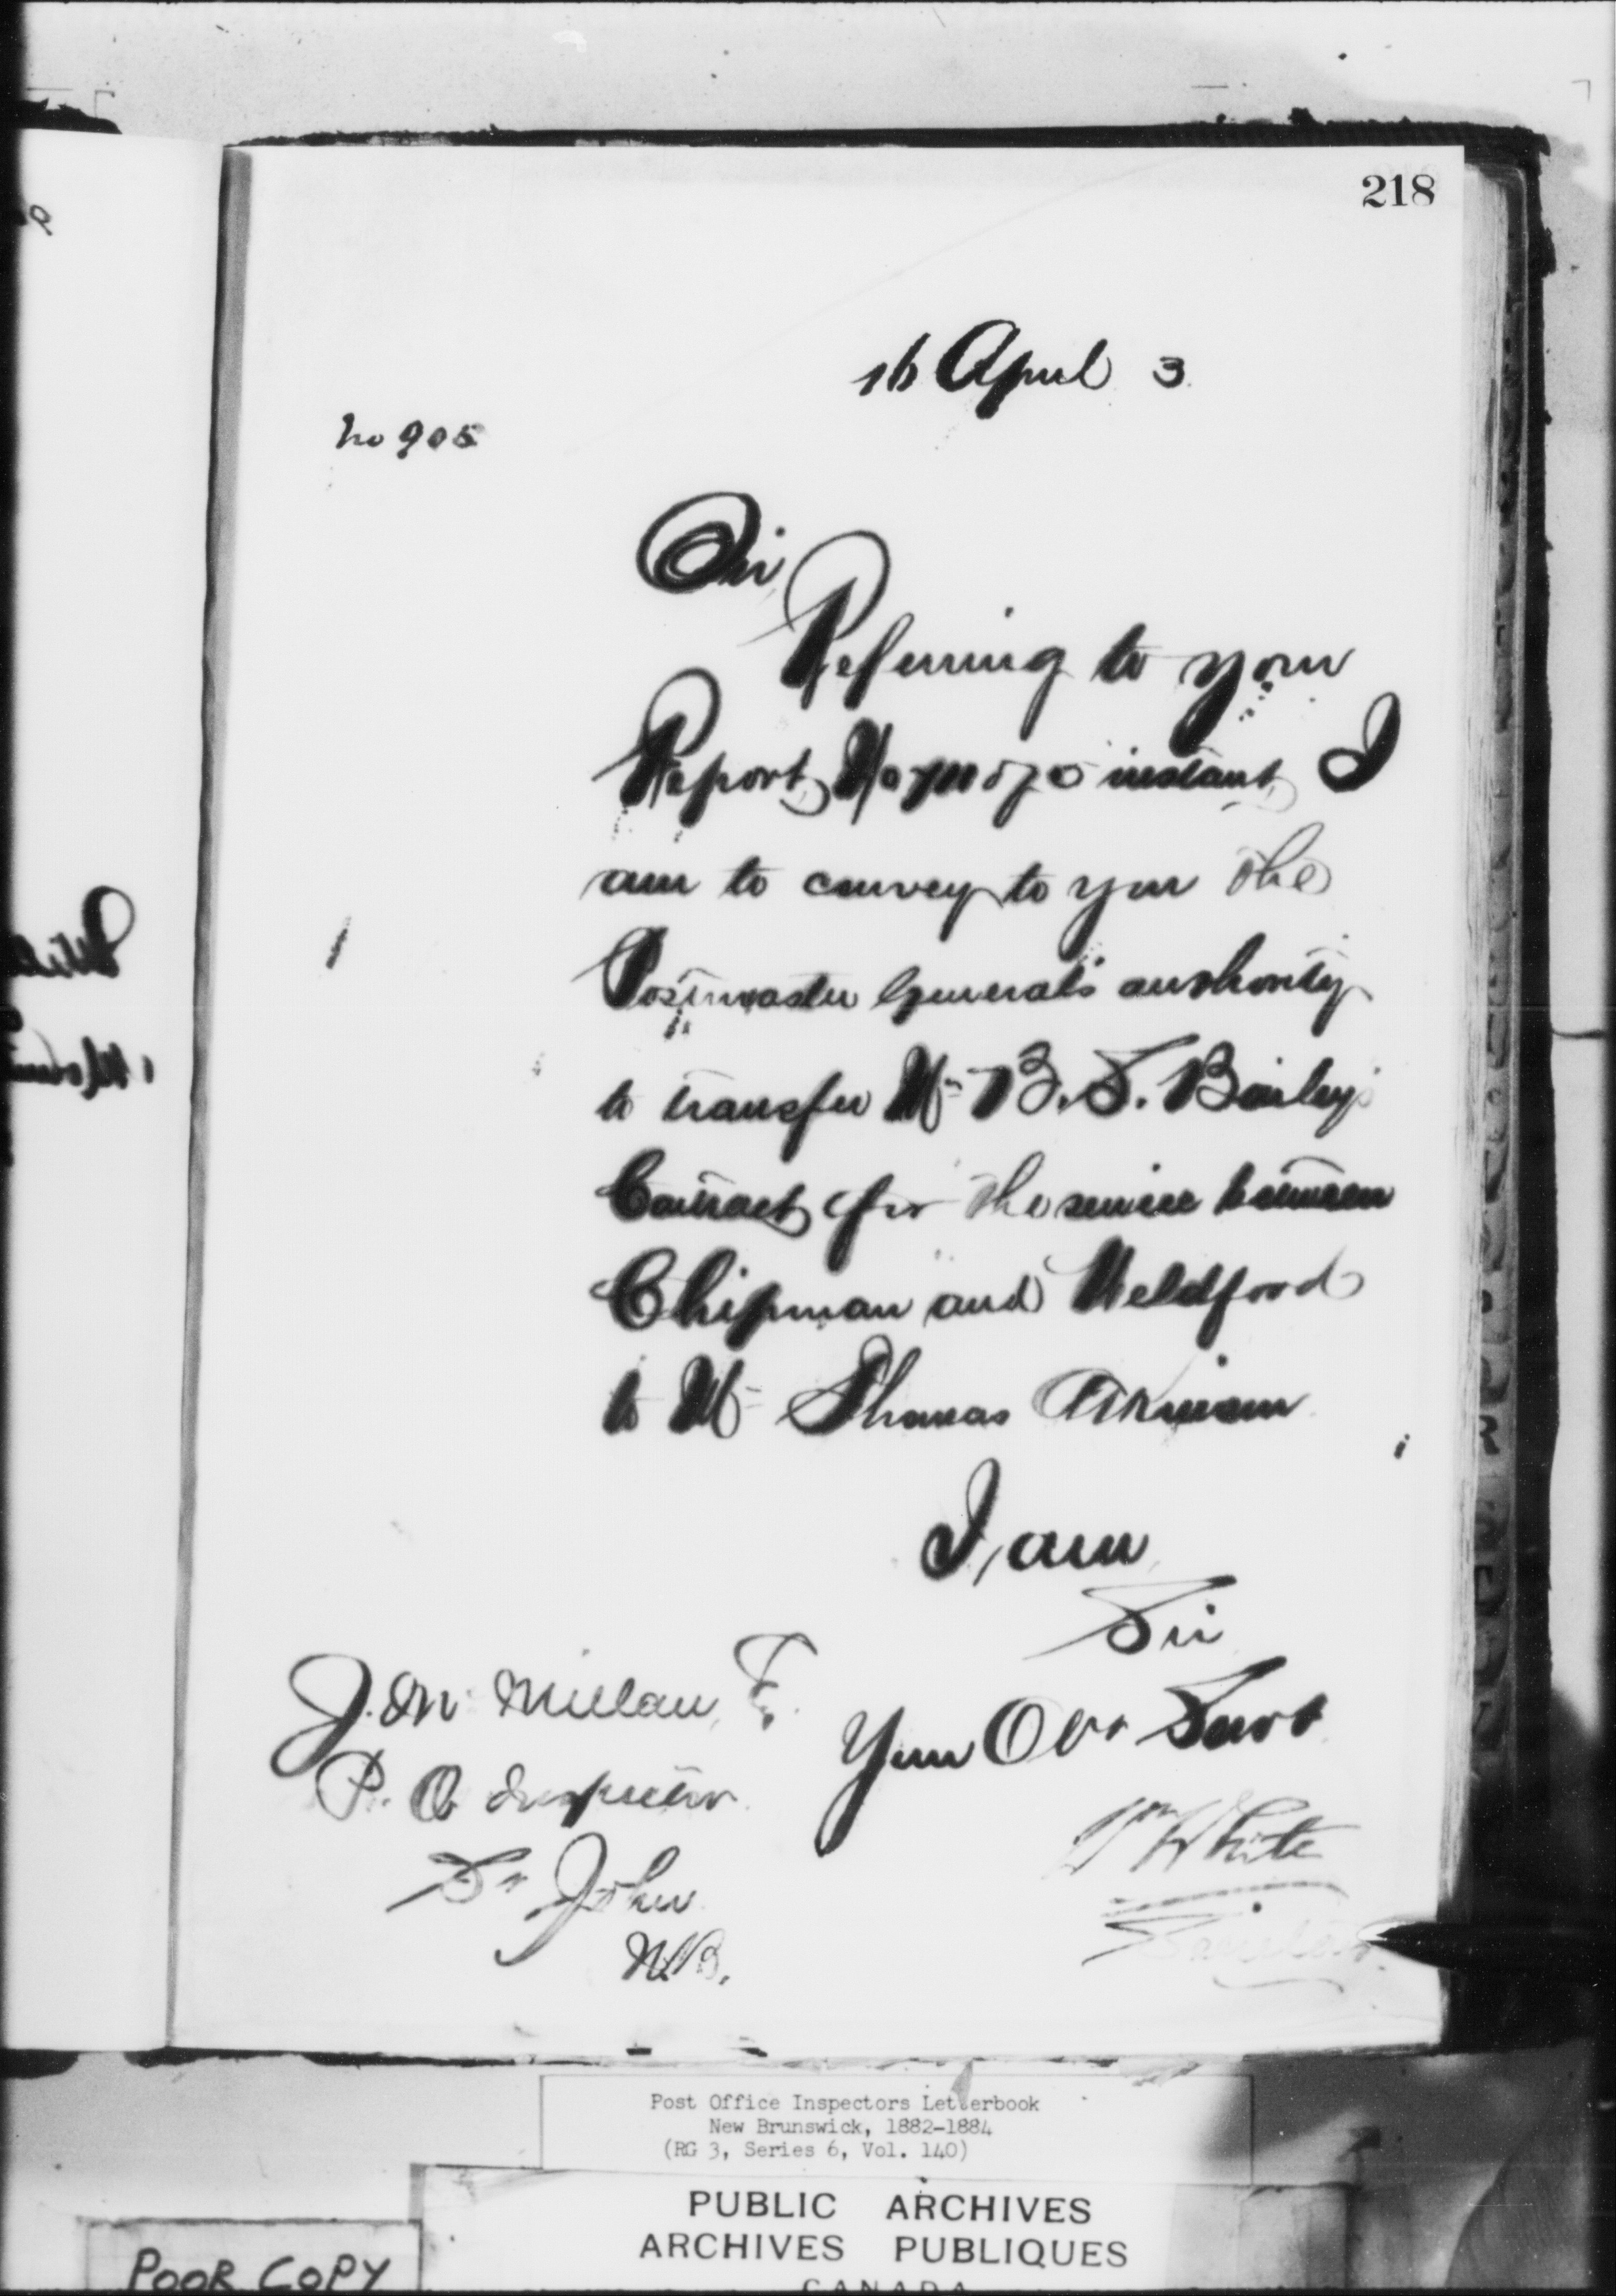 218
16 April 3
No 905
Sir,
Referring to your
Report, No instant, I
am to convey to you the
Postmaster General's authority
to transfer Mr B. S. Bailey's
Contract for the service between
Chipman and Weldford
to Mr Thomas Atkinson
I am,
Sir
Your Obt Servt
J. Mc Millan,
P. O Inspector
St John
N.B.
Wm White
Secretary.
Post Office Inspectors Letterbook
New Brunswick, 1882-1884
(RG 3, Series 6, Vol. 140)
PUBLIC ARCHIVES
ARCHIVES PUBLIQUES
CANADA
POOR COPY